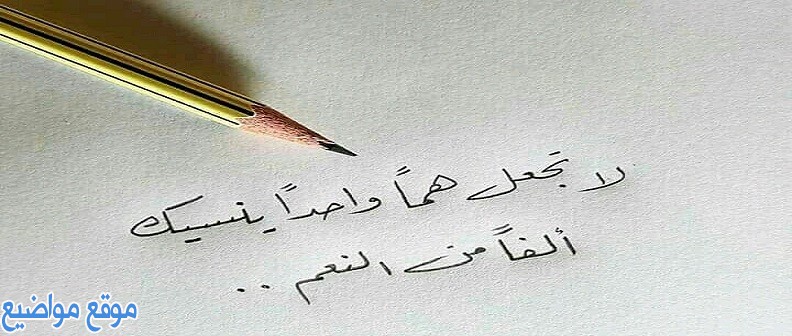 لا تجعل هماً واحداً ينسيك
ألفاً من النعم ..
موقع مواضيع